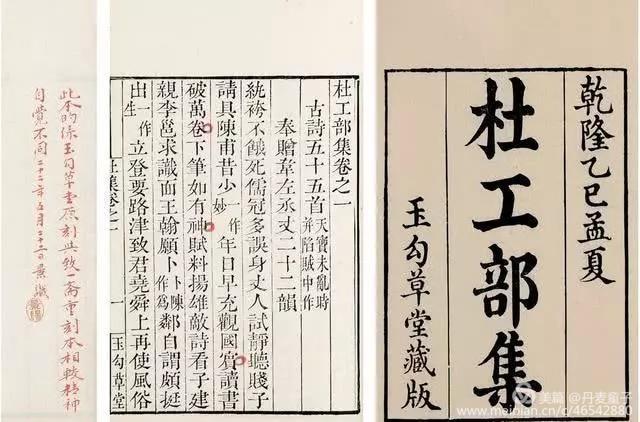 乾隆乙巳孟夏
杜工部集
玉勾草堂藏版
杜工部集卷之一
古詩五十五首 天寶未亂時并陷賊中作
奉贈韋左丞丈二十二韻
紈袴不餓死儒冠多誤身丈人試靜聽賤子
請具陳甫昔少一作妙年日早充觀國賓讀書
破萬卷下筆如有神賦料揚雄敵詩看子建
親李邕求識面王翰願卜卜陳作為鄰自謂頗挺
出一作生立登要路津致君堯舜上再使風俗
杜集卷之一 一 玉勾草堂
此本的係玉勾草堂原刻與致一齋重刻本相較精神
自覺不同二十二年五月二十三日黃識
美篇 @丹麦童子
www.meipian.cn/c/46542880